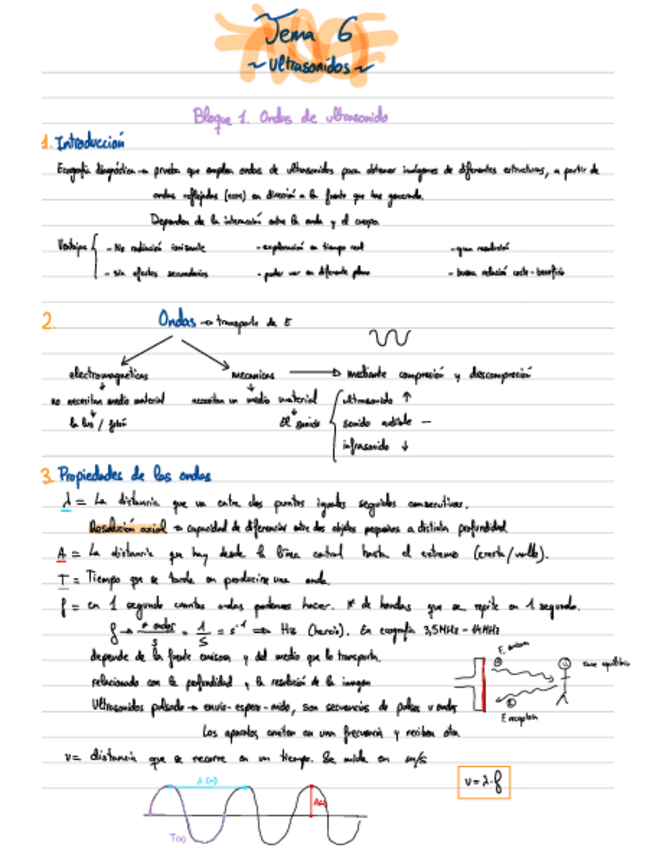 Tema 6
~ Ultrasonidos ~
Bloque 1. Ondas de ultrasonido
1. Introducción
Ecografía diagnóstica → prueba que emplea ondas de ultrasonidos para obtener imágenes de diferentes estructuras, a partir de
ondas reflejadas (ecos) en dirección a la fuente que las generado.
Dependen de la interacción entre la onda y el cuerpo
Ventajas - No radiación ionizante - exploración en tiempo real - gran resolución
- sin efectos secundarios - poder ver en diferente plano - buena relación coste-beneficio
2. Ondas → transporte de E
electromagnéticas mecánicas → mediante compresión y descompresión
no necesitan medio material necesitan un medio material ultrasonido ↑
la luz / fotón El sonido sonido audible —
infrasonido ↓
3. Propiedades de las ondas
λ = La distancia que va entre dos puntos iguales seguidos consecutivos.
Resolución axial → capacidad de diferenciar entre dos objetos pequeños a distinta profundidad
A = La distancia que hay desde la línea central hasta el extremo (cresta/valle).
T = Tiempo que se tarda en producirse una onda.
f = en 1 segundo cuantas ondas podemos hacer. nº de hondas que se repite en 1 segundo.
f → nº ondas/s = 1/s = s⁻¹ ⇒ Hz (hercio). En ecografía 3,5MHz - 14MHz
depende de la fuente emisora y del medio que lo transporta.
relacionado con la profundidad y la resolución de la imagen
Ultrasonidos pulsado → envío-espero-mido, son secuencias de pulsos u ondas
Los aparatos emiten en una frecuencia y reciben otra.
v = distancia que se recorre en un tiempo. Se mide en m/s
v = λ·f
λ (m)
T(s)